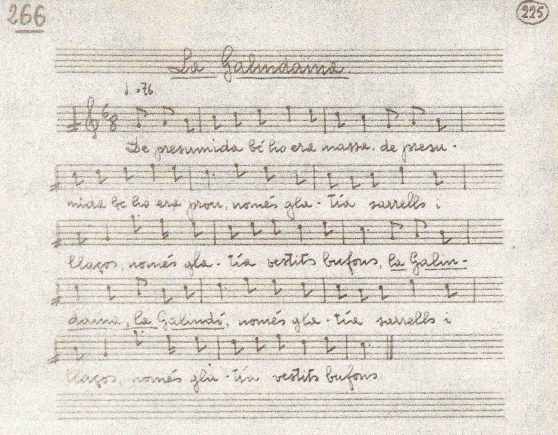 266
225
La Galindaina
♩. = 76
6/8
De presumida bé ho era massa, de presu-
mida bé ho era prou, només gla-tia serrells i
llaços, només gla-tia vestits bufons, la Galin-
daina, la Galindó, només gla-tia serrells i
llaços, només gla-tia vestits bufons